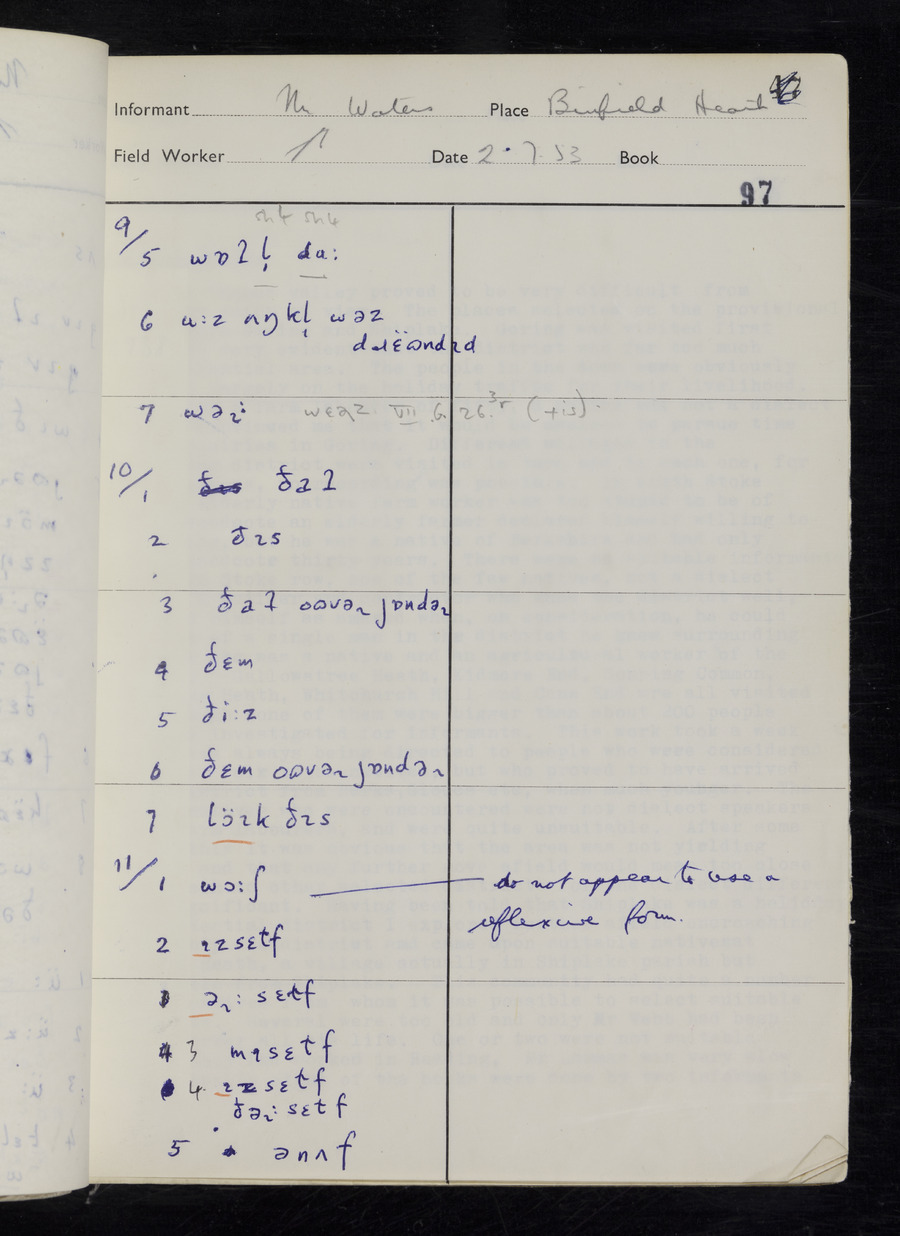 Informant Mr Waters Place Binfield Heath
Field Worker Date 2.7.53 Book
97
9/5 wɒʔl̩ da:
6 u:z ʌŋkl̩ wəz
7 wəɻ: wɛəz VII.6.26.3r (+is).
10/1 ðaʔ
2 ðɪs
3 ðaʔ oʊvəɻ jɒndəɻ
4 ðɛm
5 ði:z
6 ðɛm oʊvəɻ jɒndəɻ
7 lɔ̈ɪk ðɪs
11/1 wɔ:ʃ do not appear to use a
reflexive form.
2 ɪzsɛtf
əɻ: sɛtf
3 mɪsɛtf
4 sɛtf
ðəɻ: sɛtf
5 ənʌf